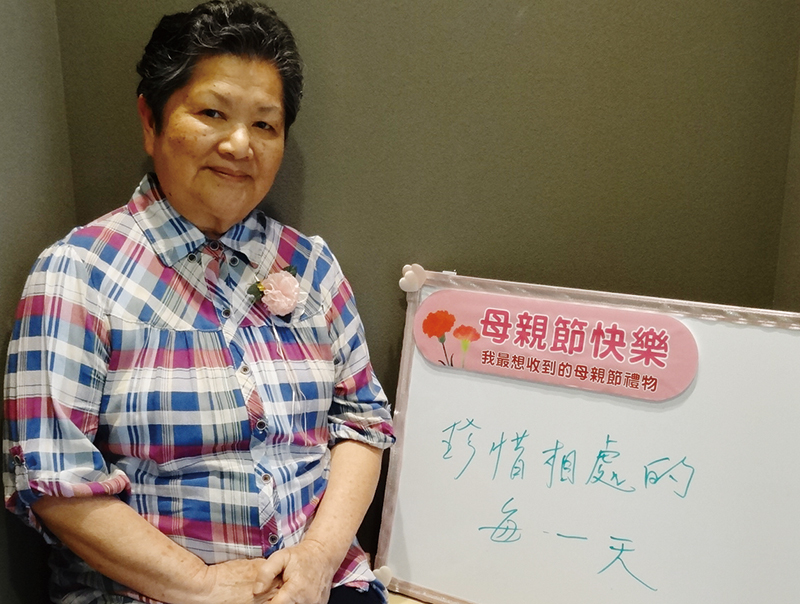 母親節快樂
我最想收到的母親節禮物
珍惜相處的
每一天